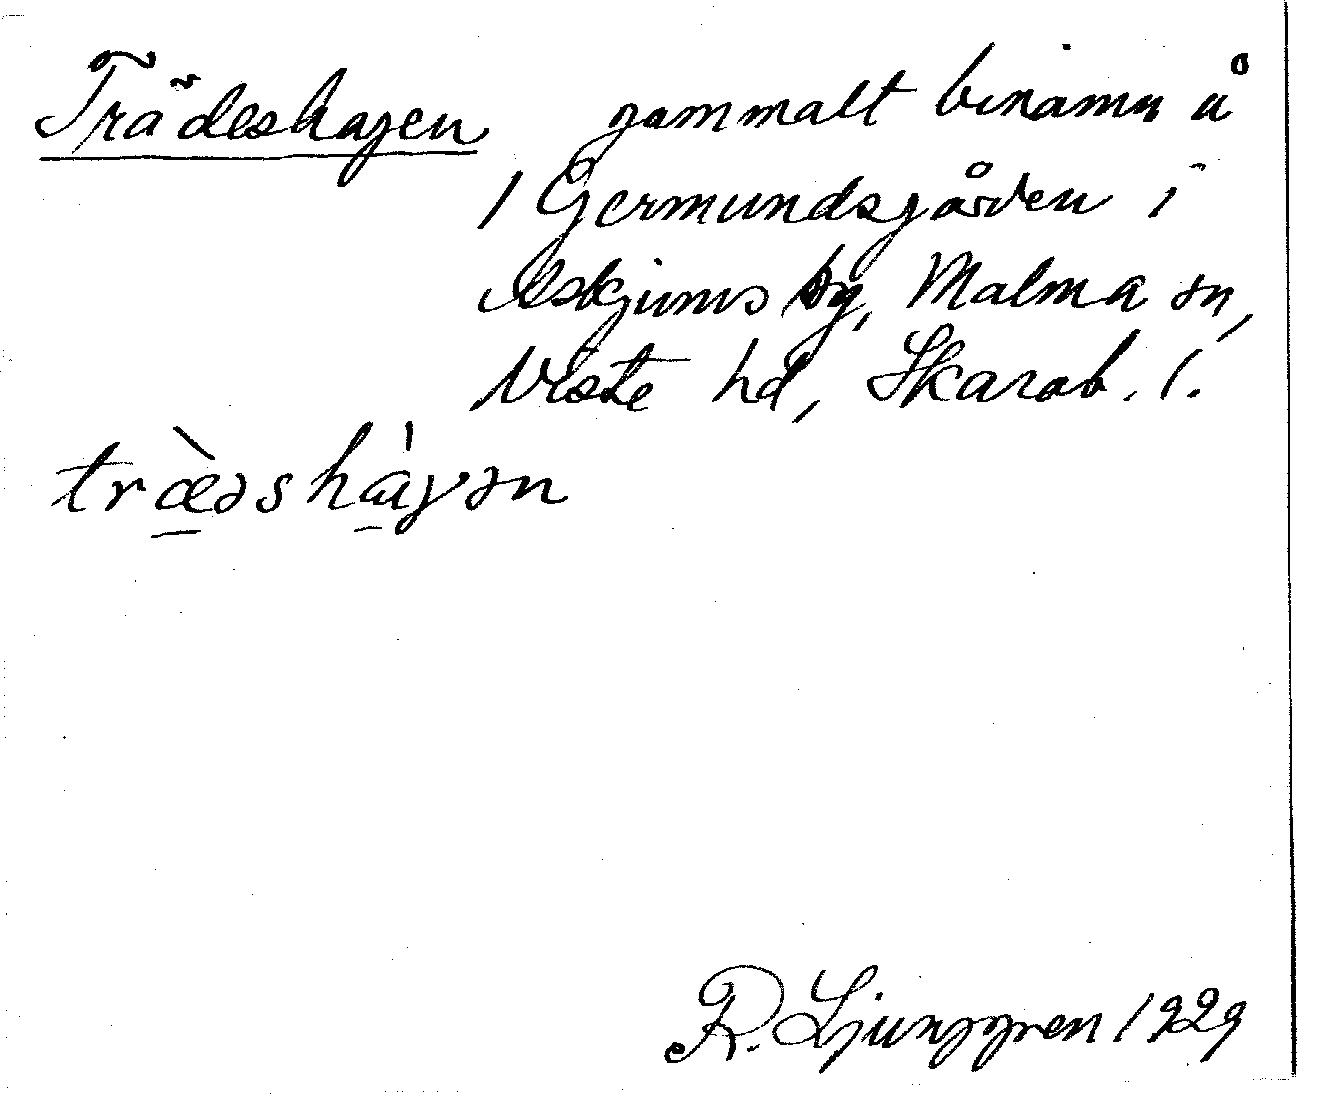 Trädeshagen gammalt binamn å
1 Germundsgården i
Askjums by, Malma sn,
Viste hd, Skarab. l.
træ̀əshàgən
R. Ljunggren 1929